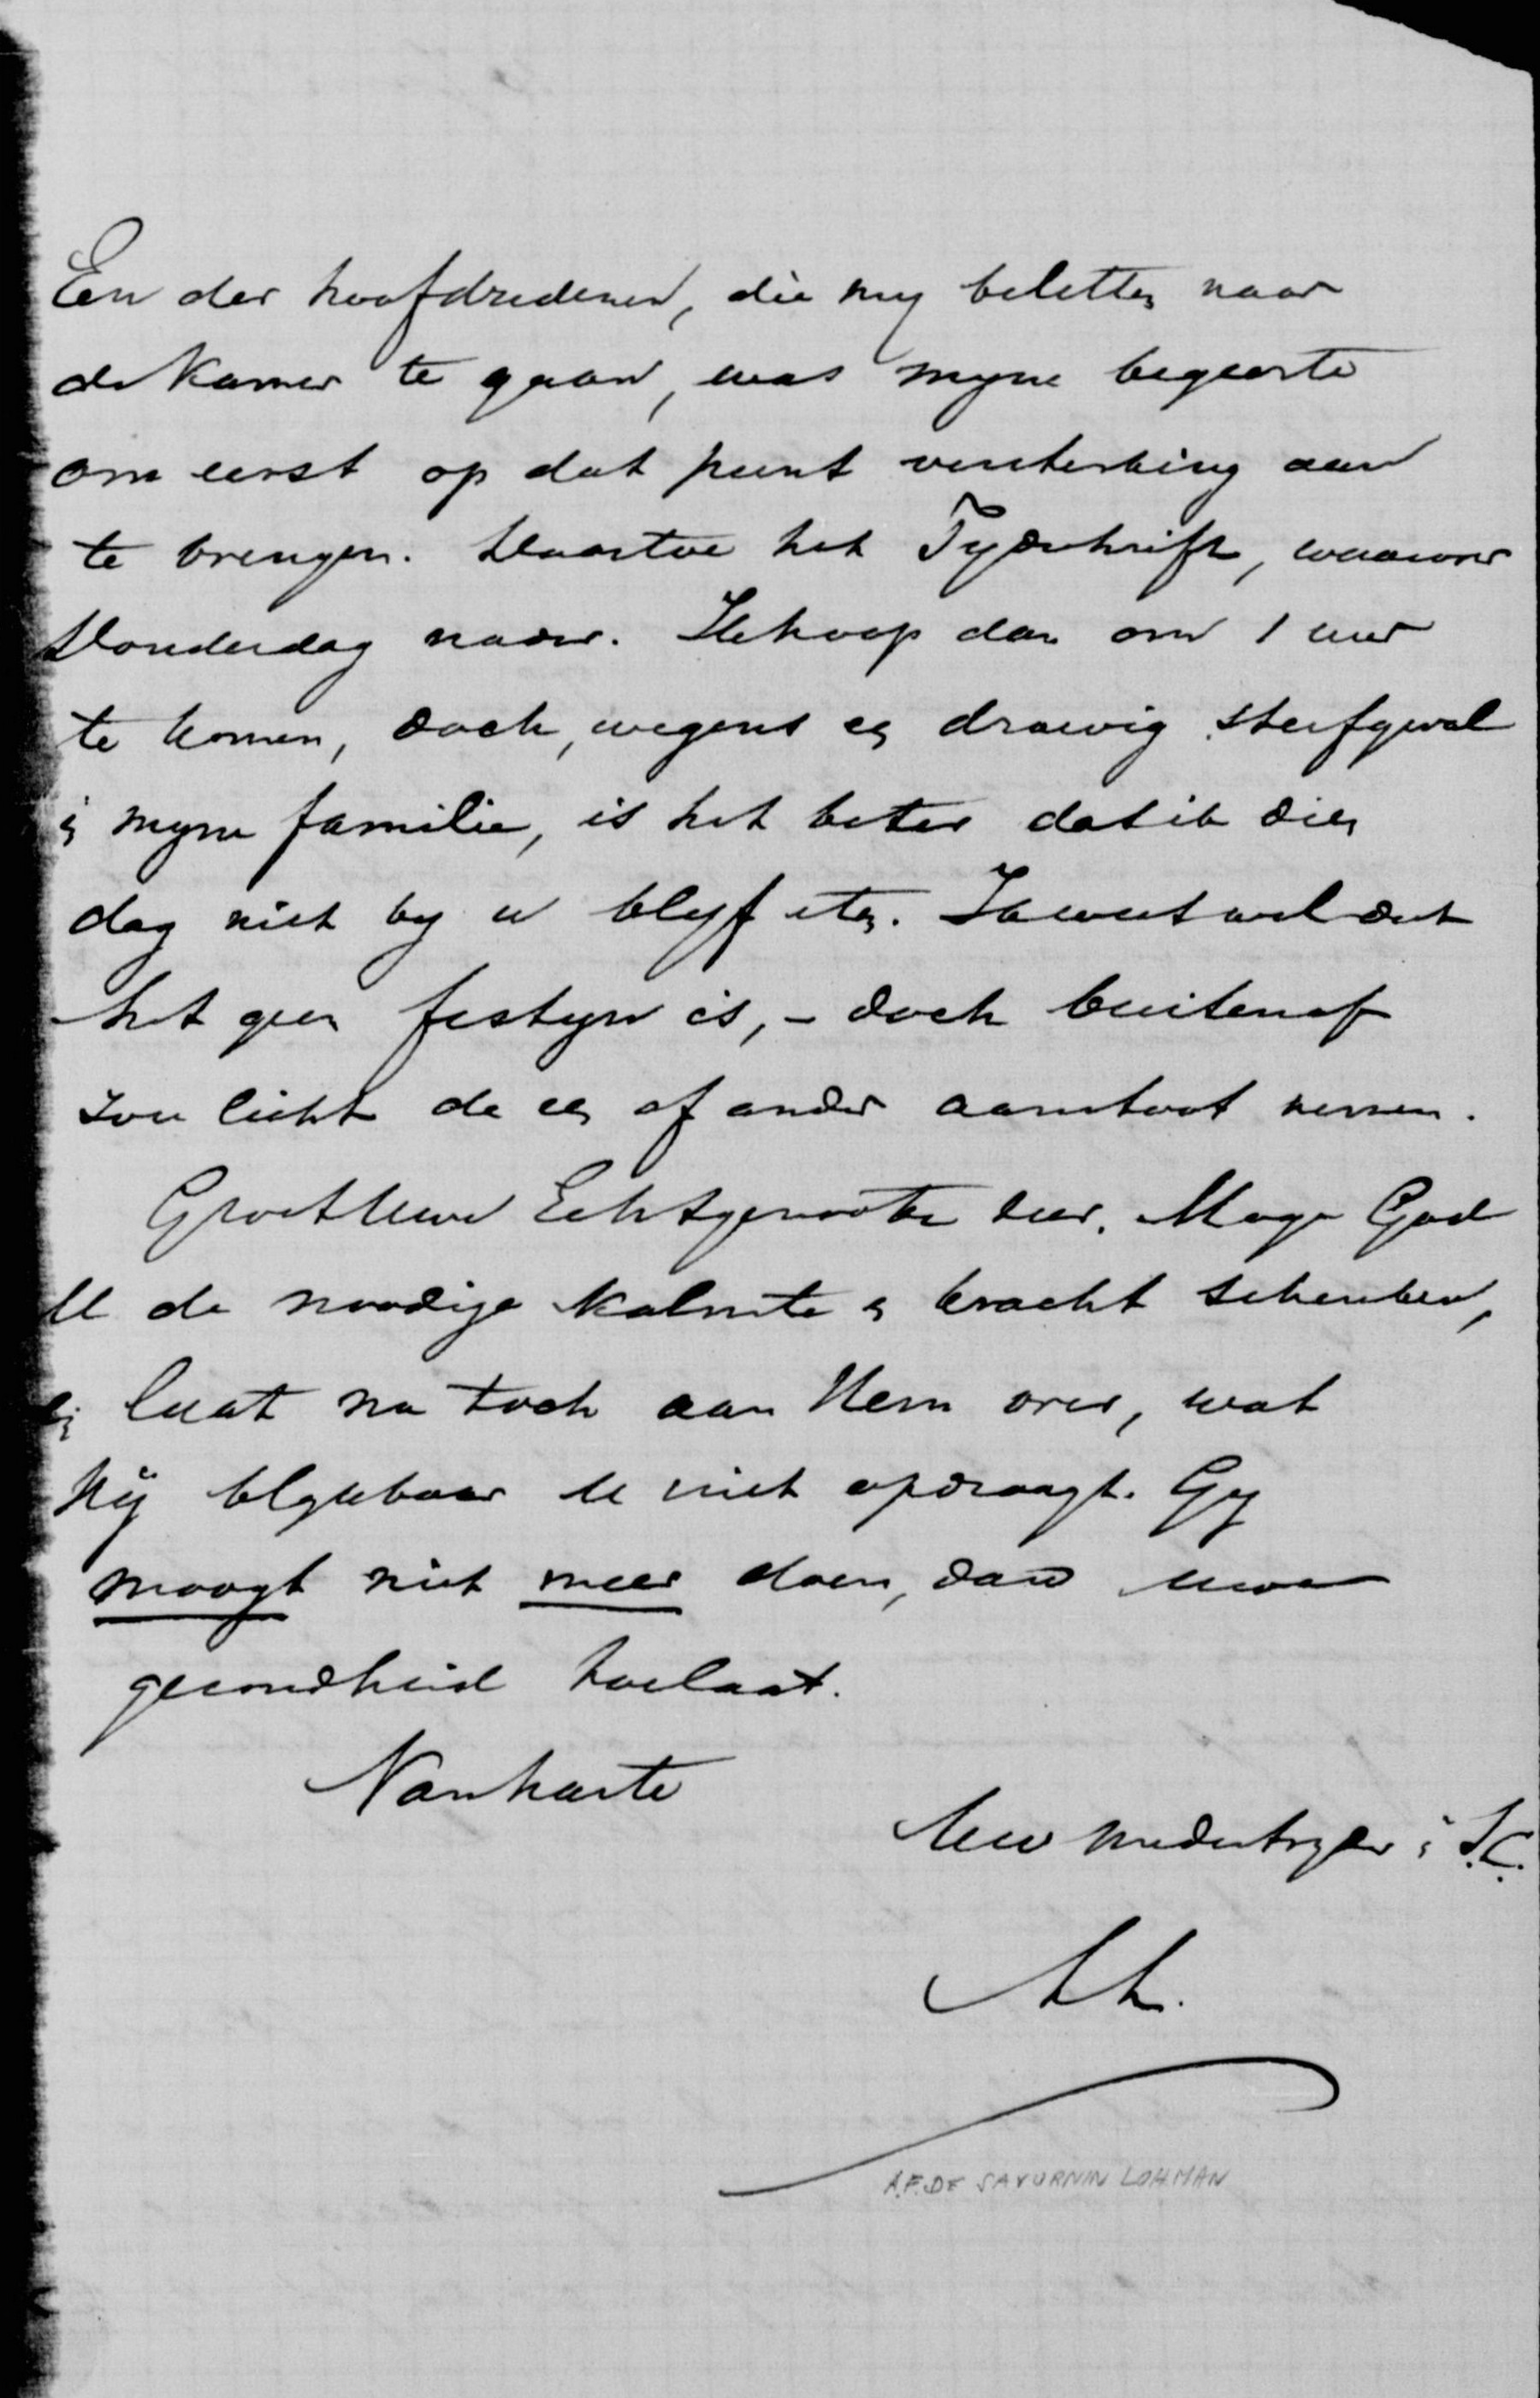 Een der hoofdredenen, die my beletten naar
de Kamer te gaan, was myne begeerte
om eerst op dat punt versterking aan
te brengen. Daartoe het Tydschrift, waarover
Donderdag nader. Ik hoop dan om 1 uur
te komen, doch, wegens een droevig sterfgeval
in myne familie, is het beter dat ik dien
dag niet by u blyf eten. Ik weet wel dat
het geen festyn is, - doch buitenaf
zou licht de een of ander aanstoot nemen.
Groet Uwe Echtgenoote zeer. Moge God
U de noodige kalmte en kracht schenken,
en laat nu toch aan Hem over, wat
Hij blykbaar U niet opdraagt. Gy
moogt niet meer doen, dan Uwe
gezondheid toelaat.
Van harte
Uw medestryder in J.C.
A.F. DE SAVORNIN LOHMAN